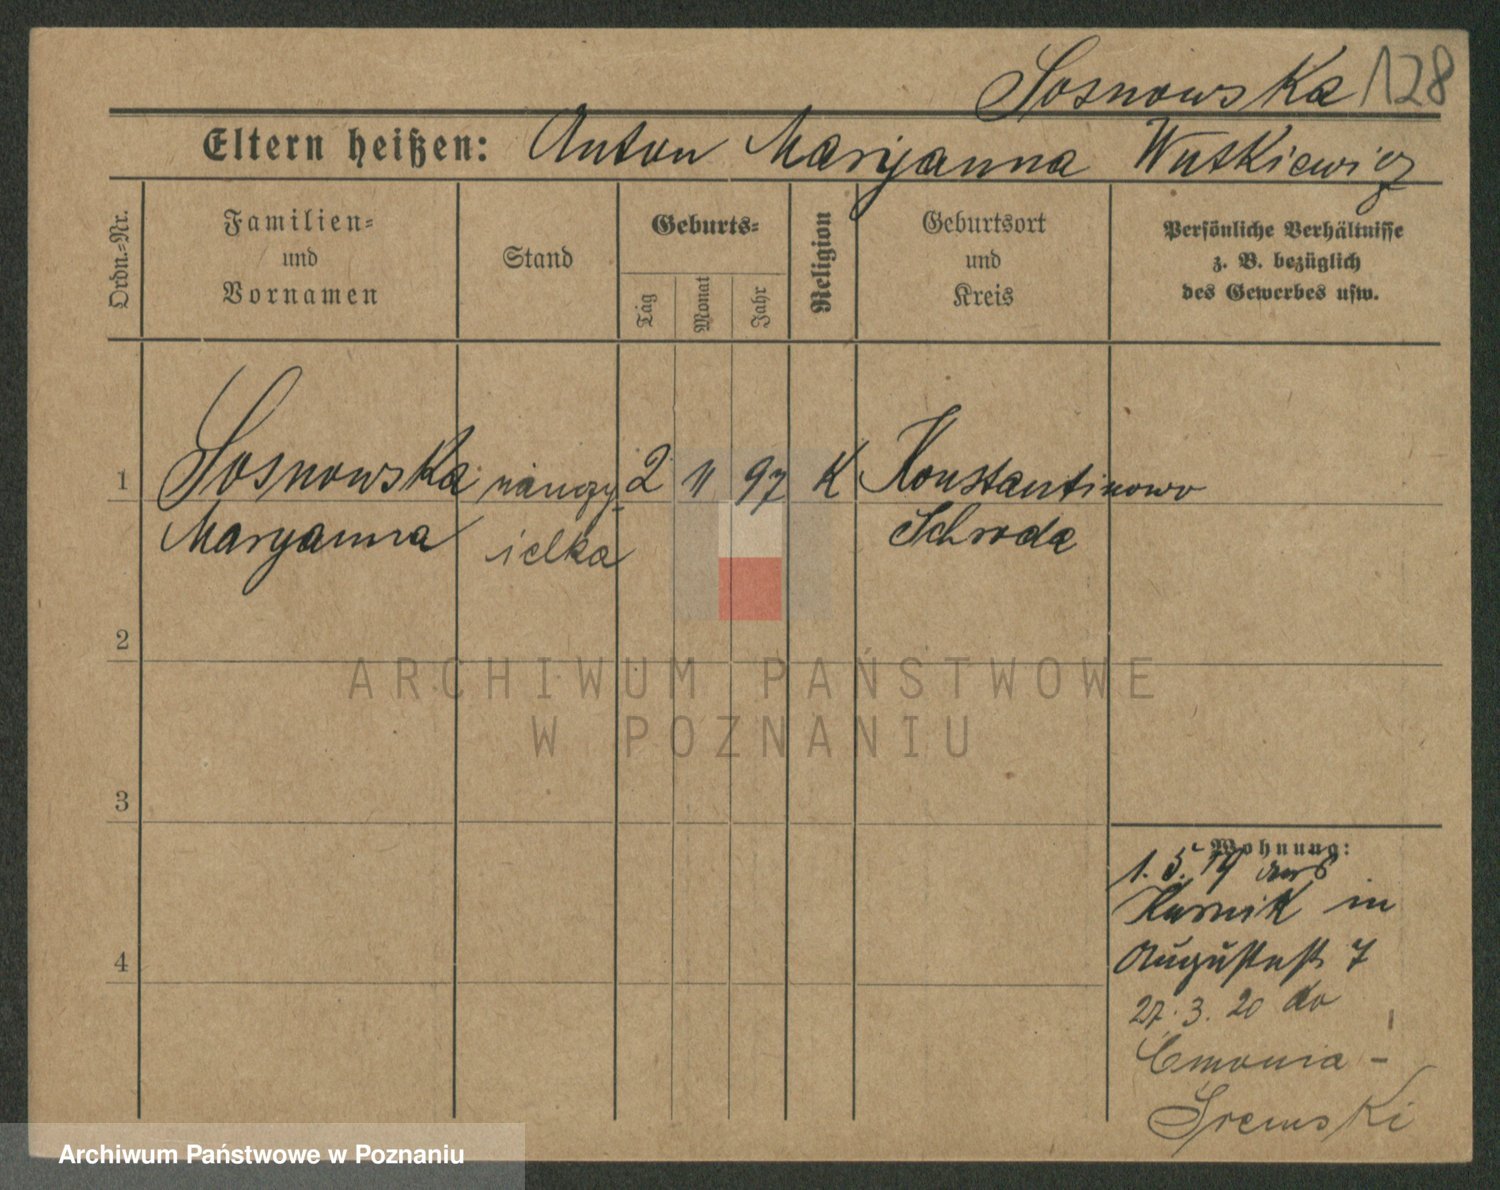 Sosnowska 128
Eltern heißen: Anton Maryanna Wutkiewicz
Ordn.-Nr.
Familien-
und
Vornamen
Stand
Geburts-
Tag
Monat
Jahr
Religion
Geburtsort
und
Kreis
Persönliche Verhältnisse
z. B. bezüglich
des Gewerbes usw.
1 Sosnowska nauczy- 2 11 97 K Konstantinowo
Maryanna ielka Schroda
2
3
4
Wohnung:
1. 5. 19 aus
Kurnik in
Augustastr 7
27. 3. 20 do
Śremski
ARCHIWUM PAŃSTWOWE
W POZNANIU
Archiwum Państwowe w Poznaniu